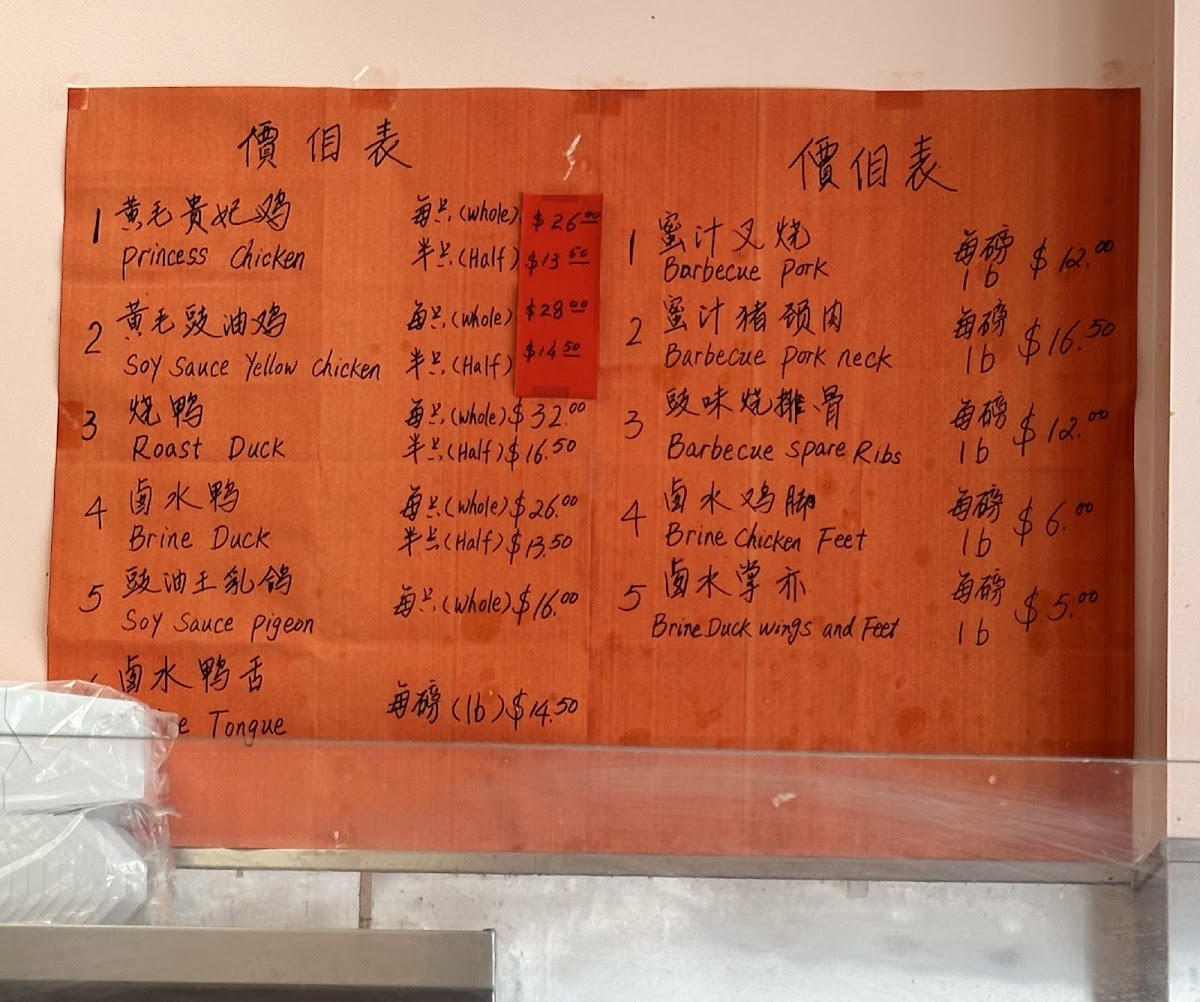 價佀表
1 黄毛貴妃鸡 每只(Whole) $26.00
Princess Chicken 半只(Half) $13.50
2 黄毛豉油鸡 每只(Whole) $28.00
Soy Sauce Yellow Chicken 半只(Half) $14.50
3 烧鸭 每只(Whole) $32.00
Roast Duck 半只(Half) $16.50
4 卤水鸭 每只(Whole) $26.00
Brine Duck 半只(Half) $13.50
5 豉油王乳鸽 每只(Whole) $16.00
Soy Sauce Pigeon
卤水鸭舌 每磅(lb) $14.50
Tongue
價佀表
1 蜜汁叉烧 每磅 $12.00
Barbecue Pork lb
2 蜜汁猪颈肉 每磅 $16.50
Barbecue Pork neck lb
3 豉味烧排骨 每磅 $12.00
Barbecue Spare Ribs lb
4 卤水鸡脚 每磅 $6.00
Brine Chicken Feet lb
5 卤水掌亦 每磅 $5.00
Brine Duck wings and Feet lb